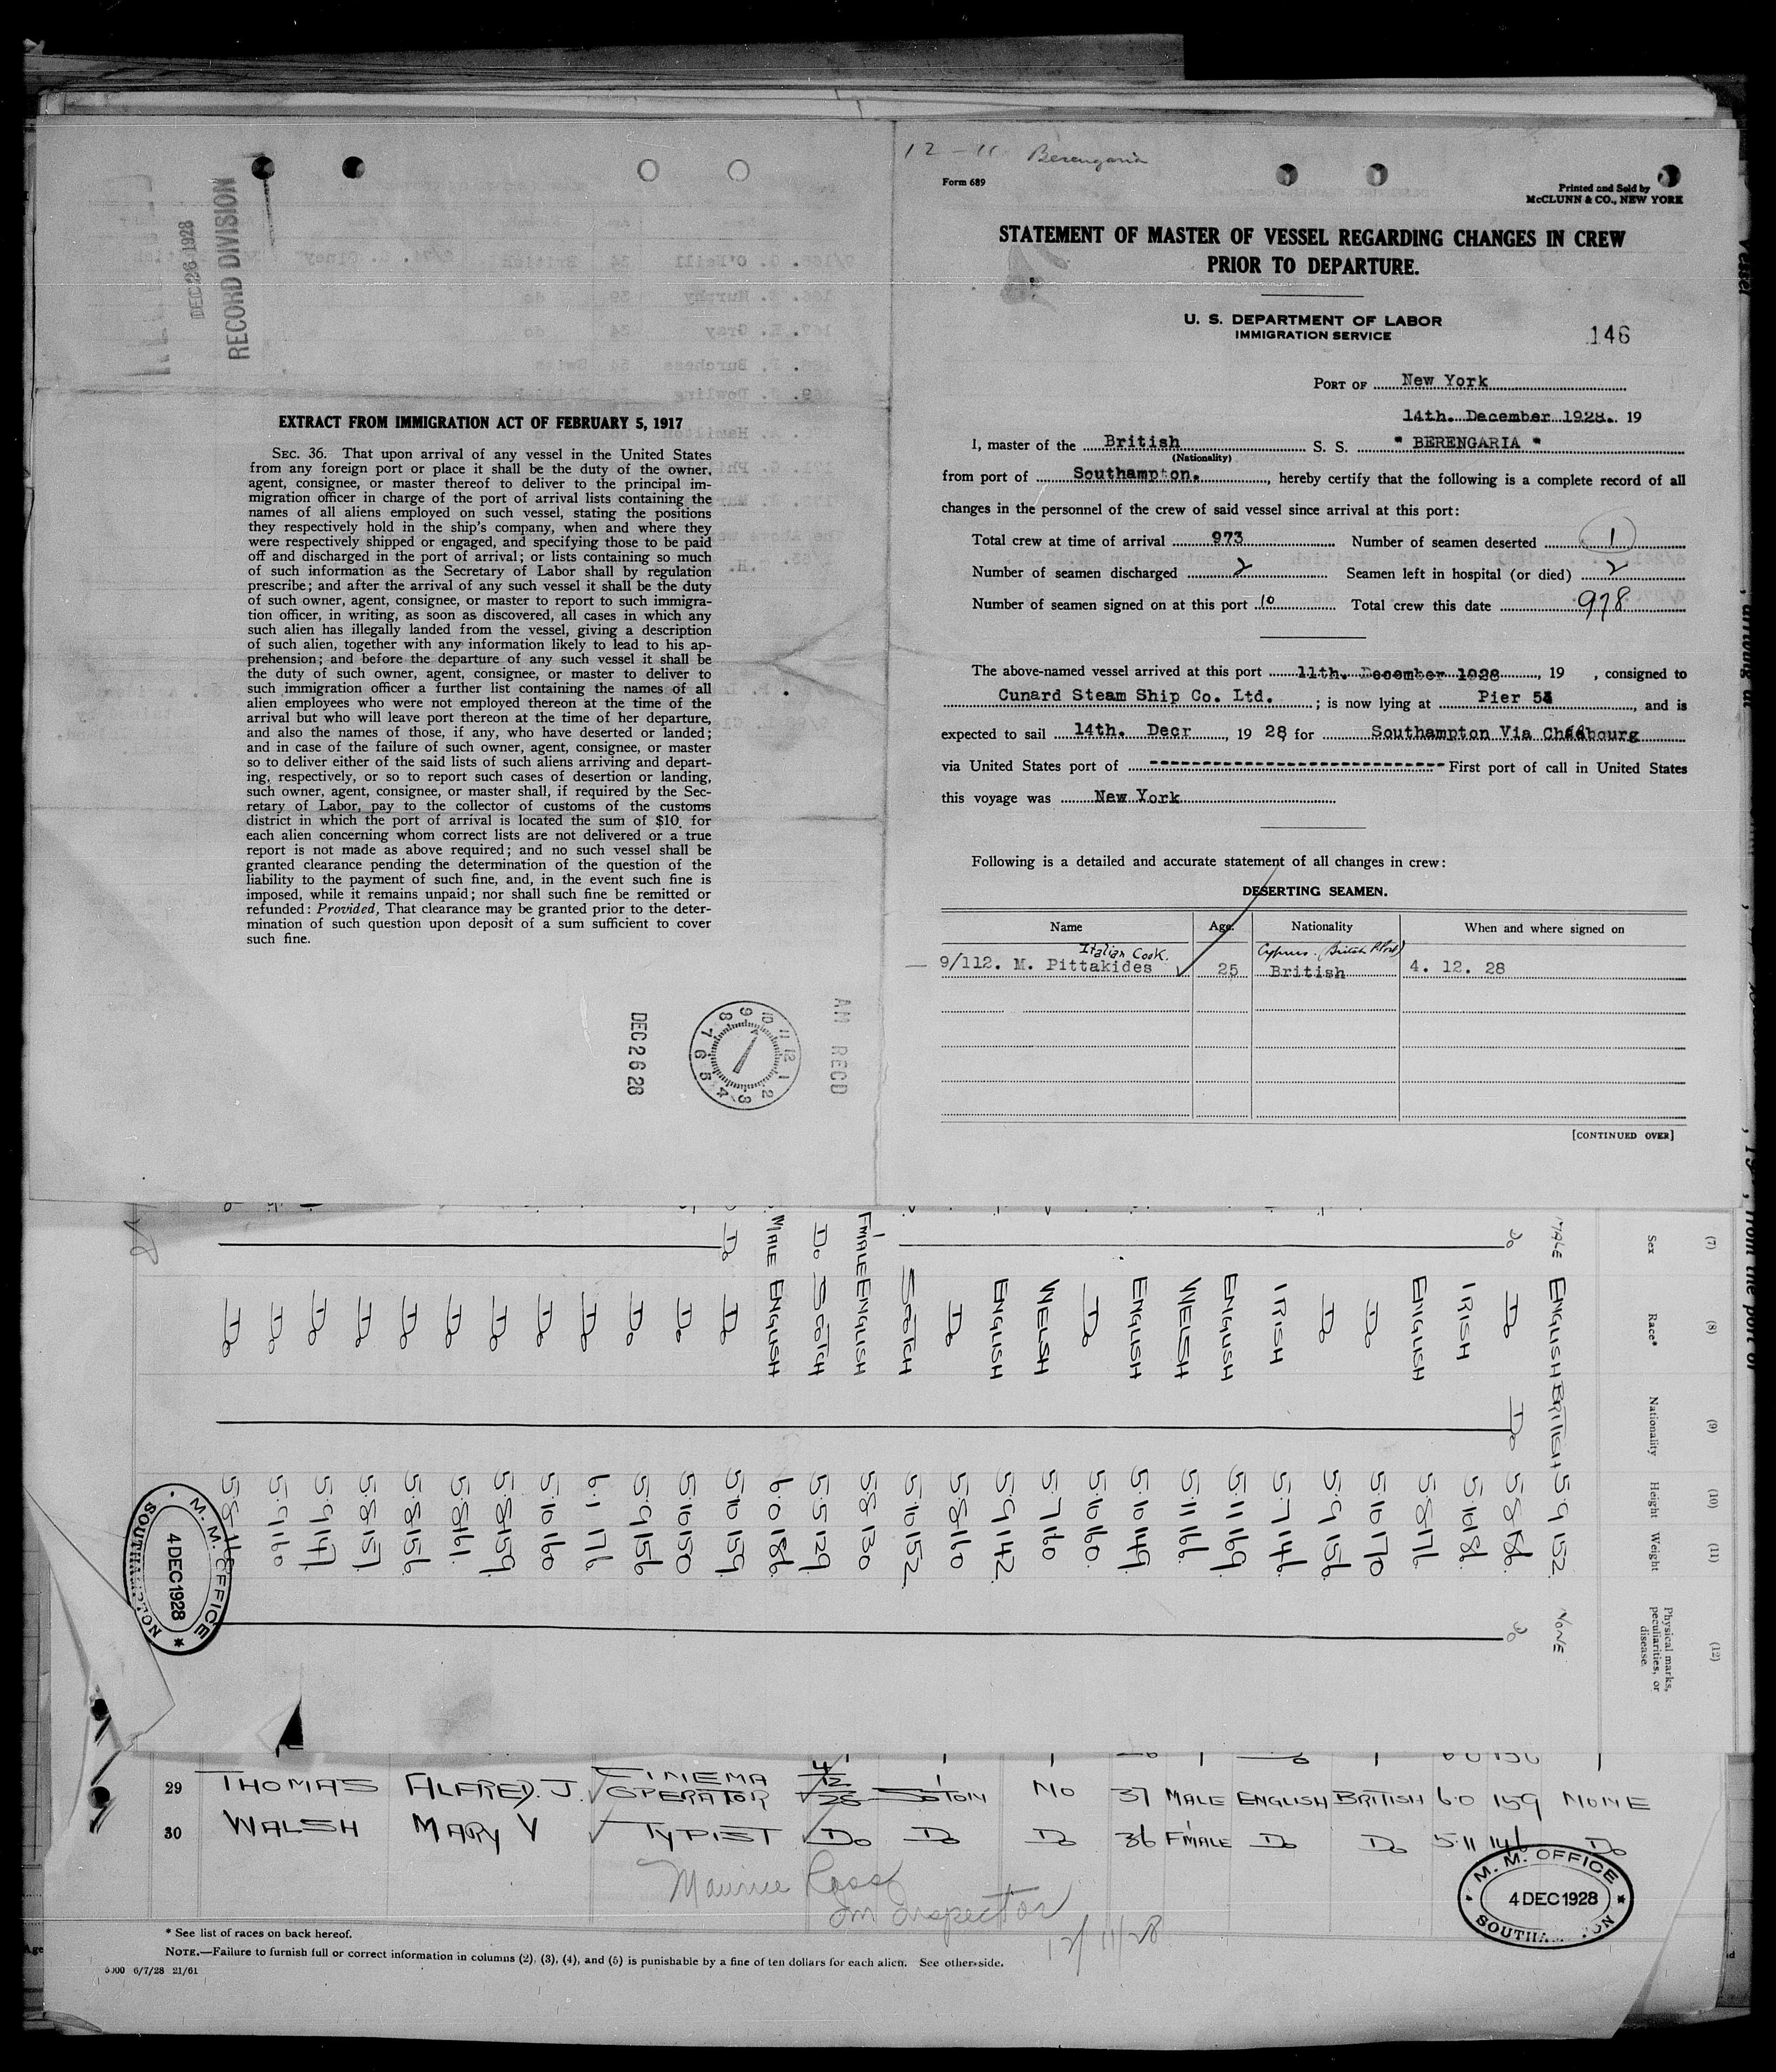 DEC 26 1928
RECORD DIVISION
EXTRACT FROM IMMIGRATION ACT OF FEBRUARY 5, 1917
SEC. 36. That upon arrival of any vessel in the United States
from any foreign port or place it shall be the duty of the owner,
agent, consignee, or master thereof to deliver to the principal im-
migration officer in charge of the port of arrival lists containing the
names of all aliens employed on such vessel, stating the positions
they respectively hold in the ship's company, when and where they
were respectively shipped or engaged, and specifying those to be paid
off and discharged in the port of arrival; or lists containing so much
of such information as the Secretary of Labor shall by regulation
prescribe; and after the arrival of any such vessel it shall be the duty
of such owner, agent, consignee, or master to report to such immigra-
tion officer, in writing, as soon as discovered, all cases in which any
such alien has illegally landed from the vessel, giving a description
of such alien, together with any information likely to lead to his ap-
prehension; and before the departure of any such vessel it shall be
the duty of such owner, agent, consignee, or master to deliver to
such immigration officer a further list containing the names of all
alien employees who were not employed thereon at the time of the
arrival but who will leave port thereon at the time of her departure,
and also the names of those, if any, who have deserted or landed;
and in case of the failure of such owner, agent, consignee, or master
so to deliver either of the said lists of such aliens arriving and depart-
ing, respectively, or so to report such cases of desertion or landing,
such owner, agent, consignee, or master shall, if required by the Sec-
retary of Labor, pay to the collector of customs of the customs
district in which the port of arrival is located the sum of $10 for
each alien concerning whom correct lists are not delivered or a true
report is not made as above required; and no such vessel shall be
granted clearance pending the determination of the question of the
liability to the payment of such fine, and, in the event such fine is
imposed, while it remains unpaid; nor shall such fine be remitted or
refunded: Provided, That clearance may be granted prior to the deter-
mination of such question upon deposit of a sum sufficient to cover
such fine.
DEC 26 28
12 1 2 3 4 5 6 7 8 9 10 11
AM RECD
12-11 Berengaria
Form 689
Printed and Sold by
McCLUNN & CO., NEW YORK
STATEMENT OF MASTER OF VESSEL REGARDING CHANGES IN CREW
PRIOR TO DEPARTURE.
U. S. DEPARTMENT OF LABOR
IMMIGRATION SERVICE
146
PORT OF New York
14th. December 1928. 19
I, master of the British S. S. " BERENGARIA "
(Nationality)
from port of Southampton. , hereby certify that the following is a complete record of all
changes in the personnel of the crew of said vessel since arrival at this port:
Total crew at time of arrival 973 Number of seamen deserted 1
Number of seamen discharged 2 Seamen left in hospital (or died) 2
Number of seamen signed on at this port 10 Total crew this date 978
The above-named vessel arrived at this port 11th. December 1928 , 19 , consigned to
Cunard Steam Ship Co. Ltd. ; is now lying at Pier 54 , and is
expected to sail 14th. Decr , 19 28, for Southampton Via Cherbourg
via United States port of ---------- First port of call in United States
this voyage was New York
Following is a detailed and accurate statement of all changes in crew:
DESERTING SEAMEN.
Name Age. Nationality When and where signed on
Italian Cook. Cyprus. (British
9/112. M. Pittakides 25 British 4. 12. 28
[CONTINUED OVER]
(7) (8) (9) (10) (11) (12)
Sex Race* Nationality Height Weight Physical marks, peculiarities, or disease.
MALE ENGLISH BRITISH 5.9 152. NONE
Do Do Do 5.8 158. Do
IRISH 5.10 181.
ENGLISH 5.8 176.
Do 5.10 170
Do 5.9 156.
IRISH 5.7 146.
ENGLISH 5.11 169.
WELSH 5.11 166.
ENGLISH 5.10 149.
Do 5.10 160.
WELSH 5.7 160
ENGLISH 5.9 142.
Do 5.8 160
SCOTCH 5.10 152.
F'MALE ENGLISH 5.8 130
Do SCOTCH 5.5 129.
MALE ENGLISH 6.0 186.
Do Do 5.10 159.
Do 5.10 150
Do 5.9 156
Do 6.1 176.
Do 5.10 160
Do 5.8 159.
Do 5.8 161.
Do 5.8 156.
Do 5.8 157.
Do 5.9 147.
Do 5.9 160
Do 5.8
M. M. OFFICE
4 DEC 1928
SOUTHAMPTON
29 THOMAS ALFRED. J. CINEMA OPERATOR 4/12/28 SOTON NO 37 MALE ENGLISH BRITISH 6.0 159 NONE
30 WALSH MARY V TYPIST Do Do Do 36 F'MALE Do Do 5.11 146 Do
Maurice Ross
Im Inspector
12/11/28
M. M. OFFICE
4 DEC 1928
* See list of races on back hereof.
NOTE.—Failure to furnish full or correct information in columns (2), (3), (4), and (5) is punishable by a fine of ten dollars for each alien. See other side.
5000 6/7/28 21/61